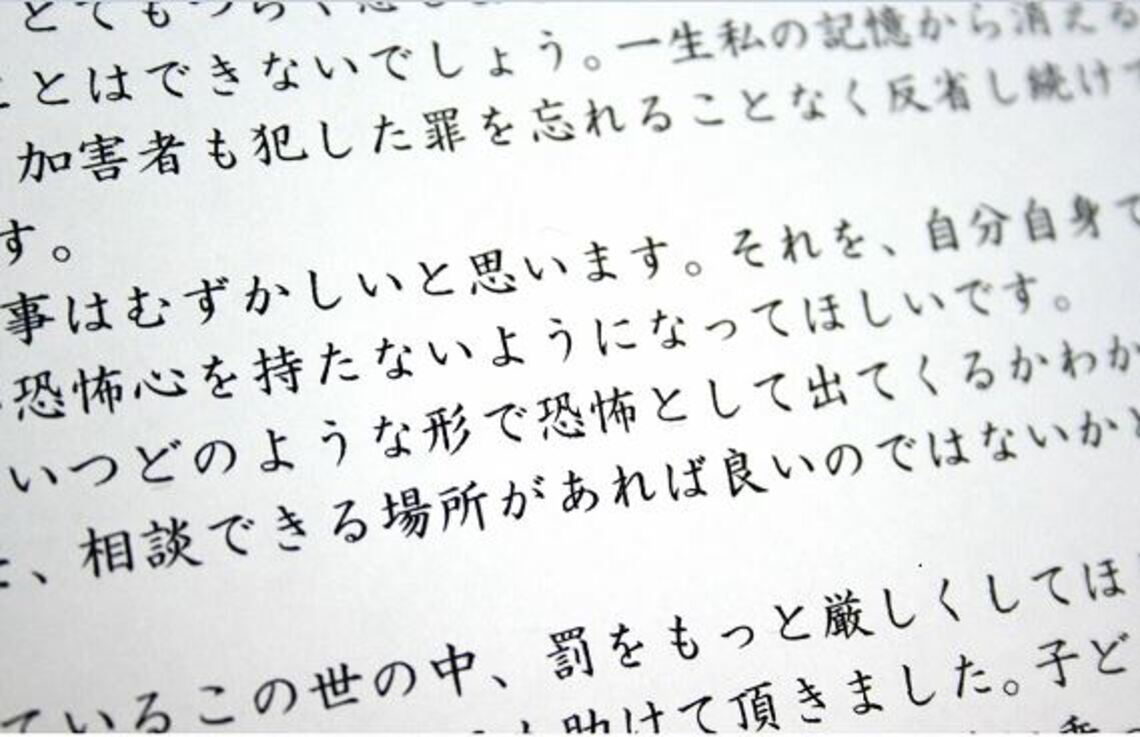 とてもつらく
ことはできないでしょう。一生私の記憶から消える
加害者も犯した罪を忘れることなく反省し続けて
す。
事はむずかしいと思います。それを、自分自身で
恐怖心を持たないようになってほしいです。
いつどのような形で恐怖として出てくるかわか
、相談できる場所があれば良いのではないかと
ているこの世の中、罰をもっと厳しくしてほ
助けて頂きました。子ど